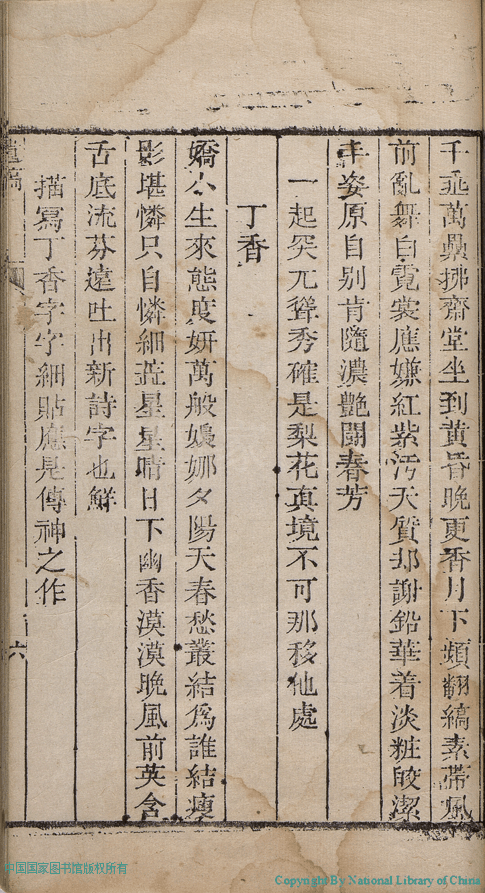 千乖萬鼻拂齋堂坐到黃昏晚更香月下頻翻縞素帶風
前亂舞白霓裳應嫌紅紫汚天質却謝鉛華着淡粧皎潔
丰姿原自别肯隨濃艶鬪春芳
一起突兀聳秀確是梨花真境不可那移他處
丁香
嬌小生來態度妍萬般嬝娜夕陽天春愁叢結爲誰結瘦
影堪憐只自憐細蕋星星晴日下幽香漠漠晚風前英含
舌底流芬遠吐出新詩字也鮮
描寫丁香字字細貼應是傳神之作
六
中国国家图书馆版权所有
Copyright By National Library of China